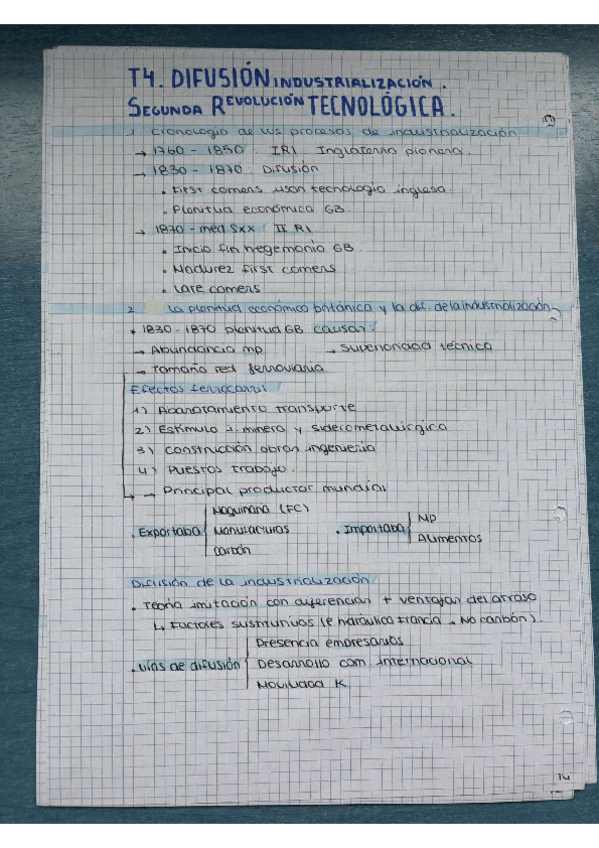 T4. DIFUSIÓN INDUSTRIALIZACIÓN.
SEGUNDA REVOLUCIÓN TECNOLÓGICA.
1. Cronología de los procesos de industrialización
→ 1760 - 1850. IRI Inglaterra pionera.
→ 1830 - 1870. Difusión
• First comers usan tecnología inglesa.
• Plenitud económica GB.
→ 1870 - med SXX II RI
• Inicio fin hegemonía GB.
• Madurez first comers
• Late comers
2. La plenitud económica británica y la dif. de la industrialización
• 1830 - 1870 plenitud GB causas:
→ Abundancia mp → Superioridad técnica
→ Tamaño red ferroviaria
Efectos ferrocarril
1) Abaratamiento transporte
2) Estímulo i. minera y siderometalúrgica
3) Construcción obras ingeniería
4) Puestos trabajo.
→ Principal productor mundial
• Exportaba Maquinaria (FC) Manufacturas Carbón • Importaba MP Alimentos
Difusión de la industrialización
• Teoría imitación con diferencias + ventajas del atraso
↳ Factores sustitutivos (e hidráulica Francia → No carbón).
• Vías de difusión Presencia empresarios
Desarrollo com internacional
Movilidad K
14